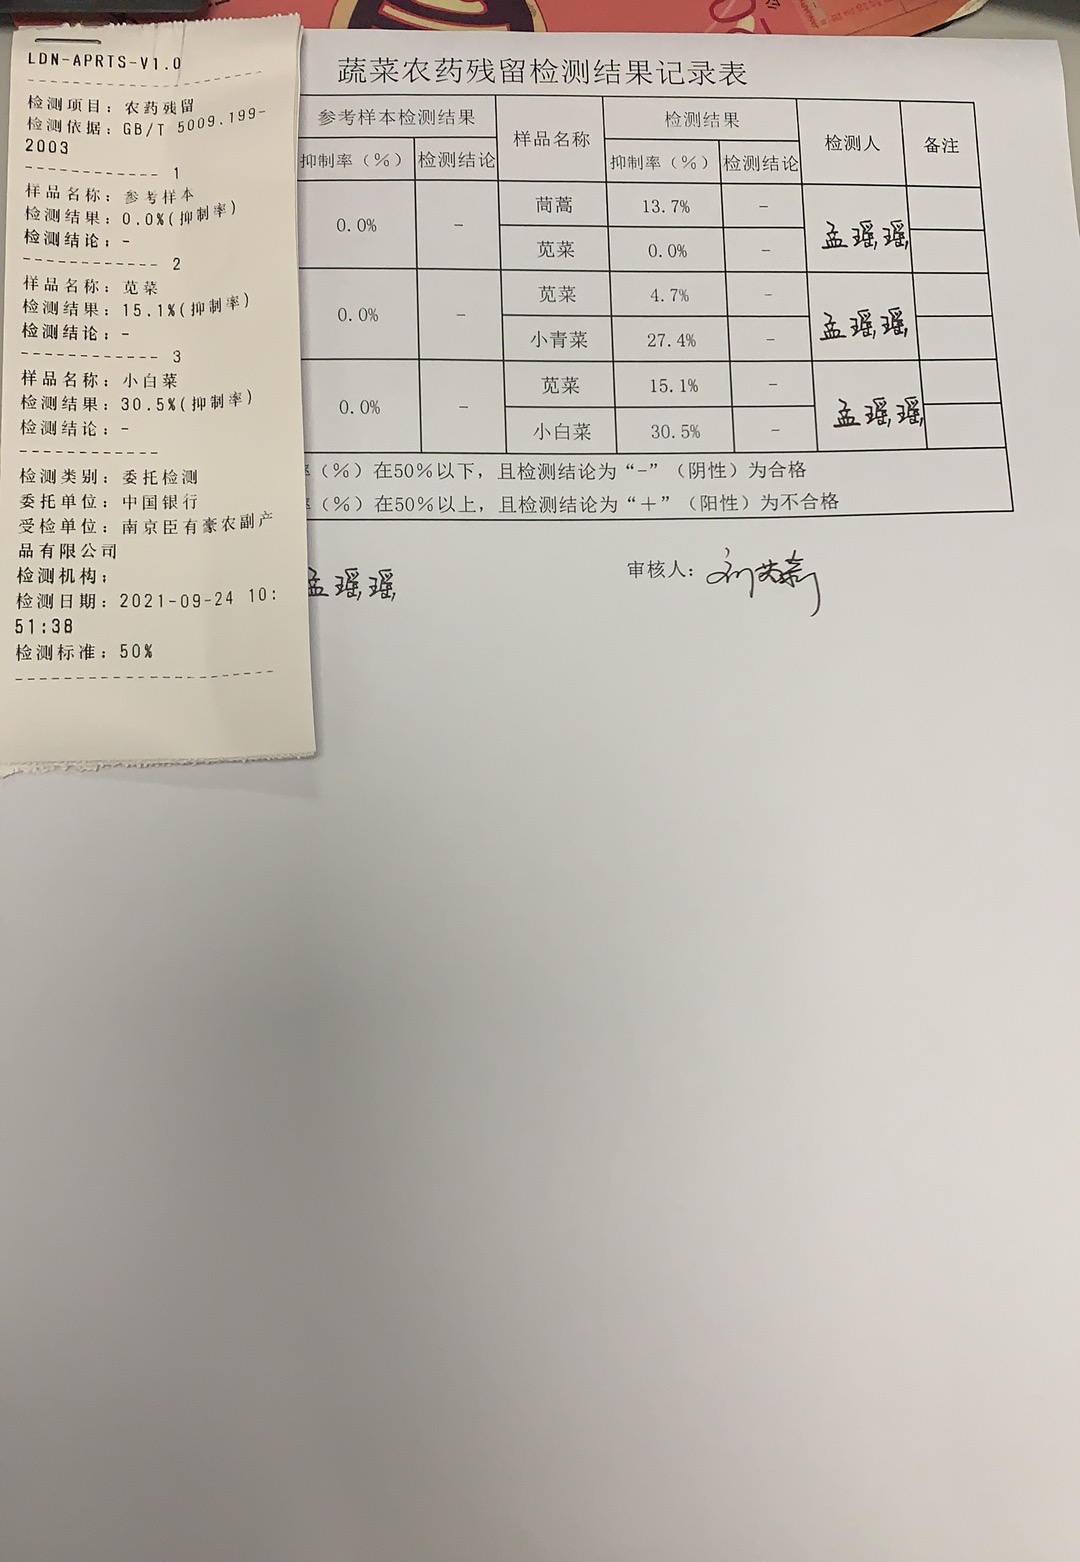 LDN-APRTS-V1.0
检测项目：农药残留
检测依据：GB/T 5009.199-
2003
------------ 1
样品名称：参考样本
检测结果：0.0%(抑制率)
检测结论：-
------------ 2
样品名称：苋菜
检测结果：15.1%(抑制率)
检测结论：-
------------ 3
样品名称：小白菜
检测结果：30.5%(抑制率)
检测结论：-
------------
检测类别：委托检测
委托单位：中国银行
受检单位：南京臣有豪农副产
品有限公司
检测机构：
检测日期：2021-09-24 10:
51:38
检测标准：50%
蔬菜农药残留检测结果记录表
参考样本检测结果 样品名称 检测结果 检测人 备注
抑制率（%） 检测结论 抑制率（%） 检测结论
0.0% - 茼蒿 13.7% - 孟瑶瑶
苋菜 0.0% -
0.0% - 苋菜 4.7% - 孟瑶瑶
小青菜 27.4% -
0.0% - 苋菜 15.1% - 孟瑶瑶
小白菜 30.5% -
（%）在50%以下，且检测结论为“-”（阴性）为合格
（%）在50%以上，且检测结论为“+”（阳性）为不合格
孟瑶瑶 审核人：